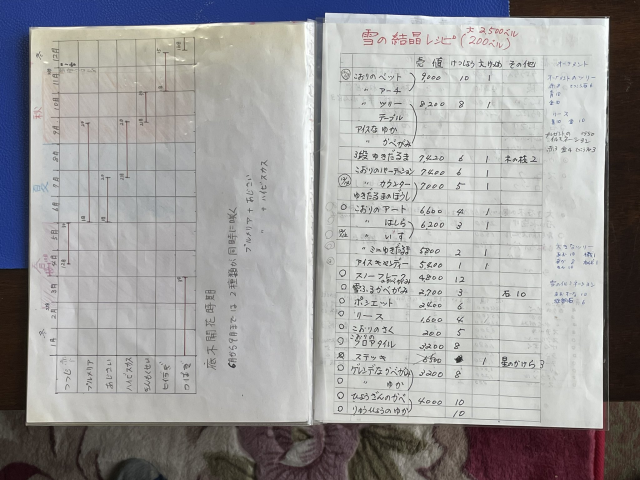 低木開花時期
6月から9月までは2種類が同時に咲く
プルメリア + あじさい
〃 + ハイビスカス
冬 春 夏 秋 冬
1月 2月 3月 4月 5月 6月 7月 8月 9月 10月 11月 12月
つつじ
プルメリア
あじさい
ハイビスカス
きんもくせい
ヒイラギ
つばき
雪の結晶レシピ (大 2,500ベル 200ベル)
売値 けっしょう 大けっしょう その他
こおりのベット 9000 10 1
〃 アーチ
〃 ツリー 8,200 8 1
テーブル
アイスなゆか
〃 かべがみ
3段ゆきだるま 7,420 6 1 木の枝 2
こおりのパーテーション 7400 6 1
〃 カウンター 7000 5 1
ゆきだるまのぼうし
○ こおりのアート 6600 4 1
〃 はしら 6200 3 1
〃 いす
〃 ミニゆきだるま 5800 2 1
アイスキャンデー 5400 1 1
○ スノーフレークかべがみ 4800 12
○ 雪ふるかべがみ 2,700 3 石10
○ ポシェット 2400 6
○ リース 1,600 4
○ こおりのさく 200 5
○ こおりのフロアタイル 3200 8
ステッキ 1 星のかけら 3
○ ゲレンデなかべがみ 3200 8
〃 ゆか
○ ひょうざんのかべ 4000 10
○ りゅうひょうのゆか 10
オーナメント
リース